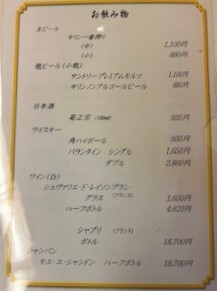 お飲み物
生ビール
キリン一番搾り
(中) 1,100円
(小) 880円
瓶ビール(小瓶)
サントリープレミアムモルツ 1,100円
キリンノンアルコールビール 880円
日本酒
菊正宗 (180ml) 935円
ウイスキー
角ハイボール 935円
バランタイン シングル 1,650円
ダブル 2,860円
ワイン(白)
シュヴァリエ・ド・レイソンブラン
グラス (フランス) 1,650円
ハーフボトル 4,620円
シャブリ (フランス)
ボトル 18,700円
シャンパン
モエ・エ・シャンドン ハーフボトル 18,700円